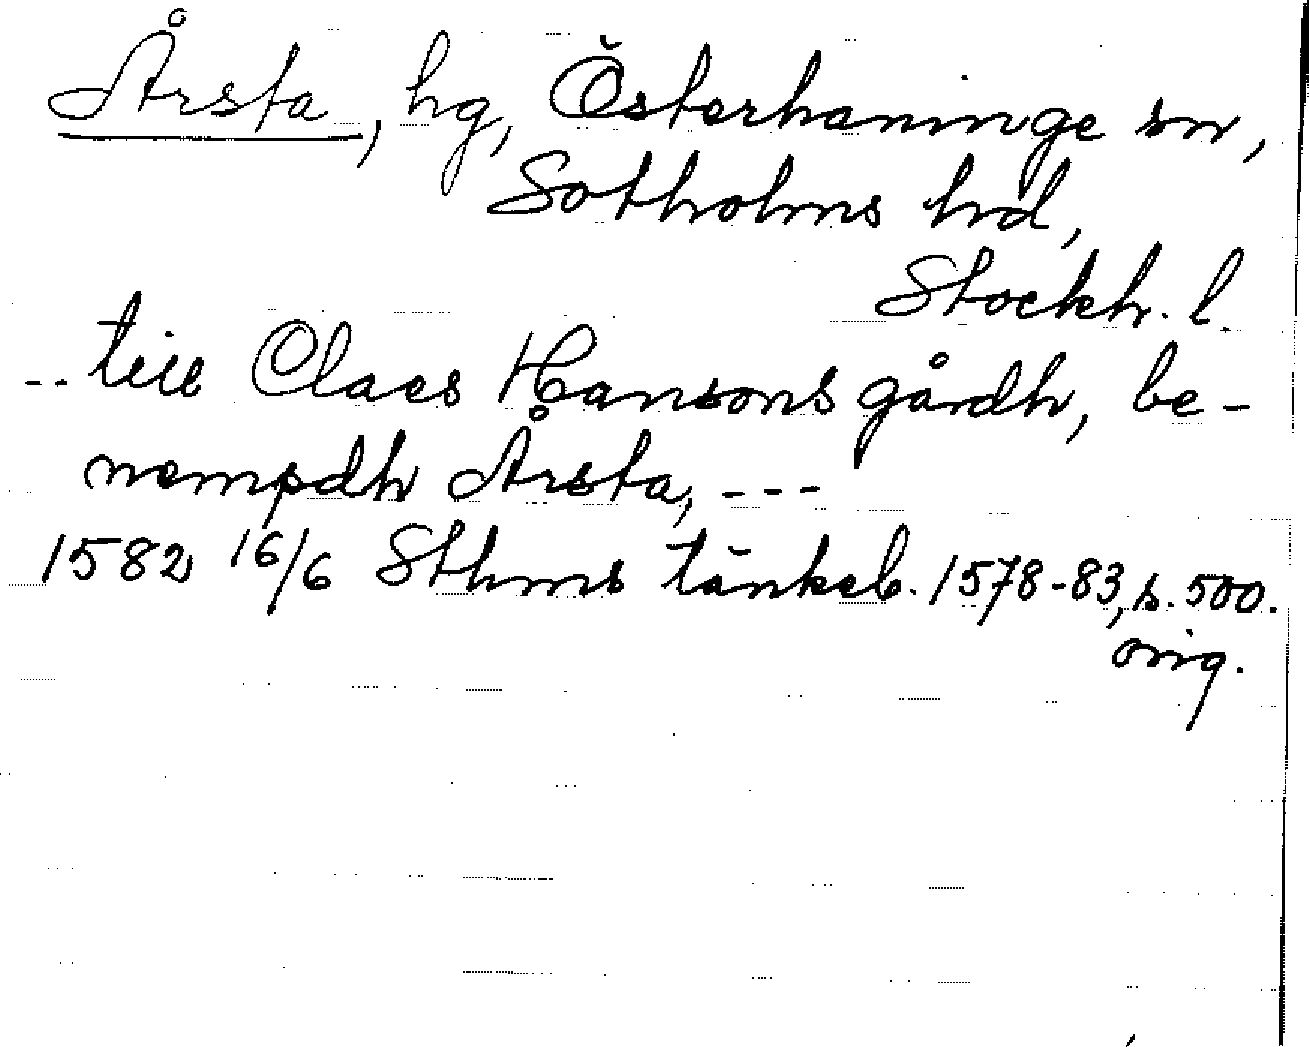 Årsta, hg, Österhaninge sn,
Sotholms hd,
Stockh. l.
-- till Claes Hansons gårdh, be-
nempdh Årsta, ---
1582 16/6 Sthms tänkeb. 1578-83, s. 500.
orig.